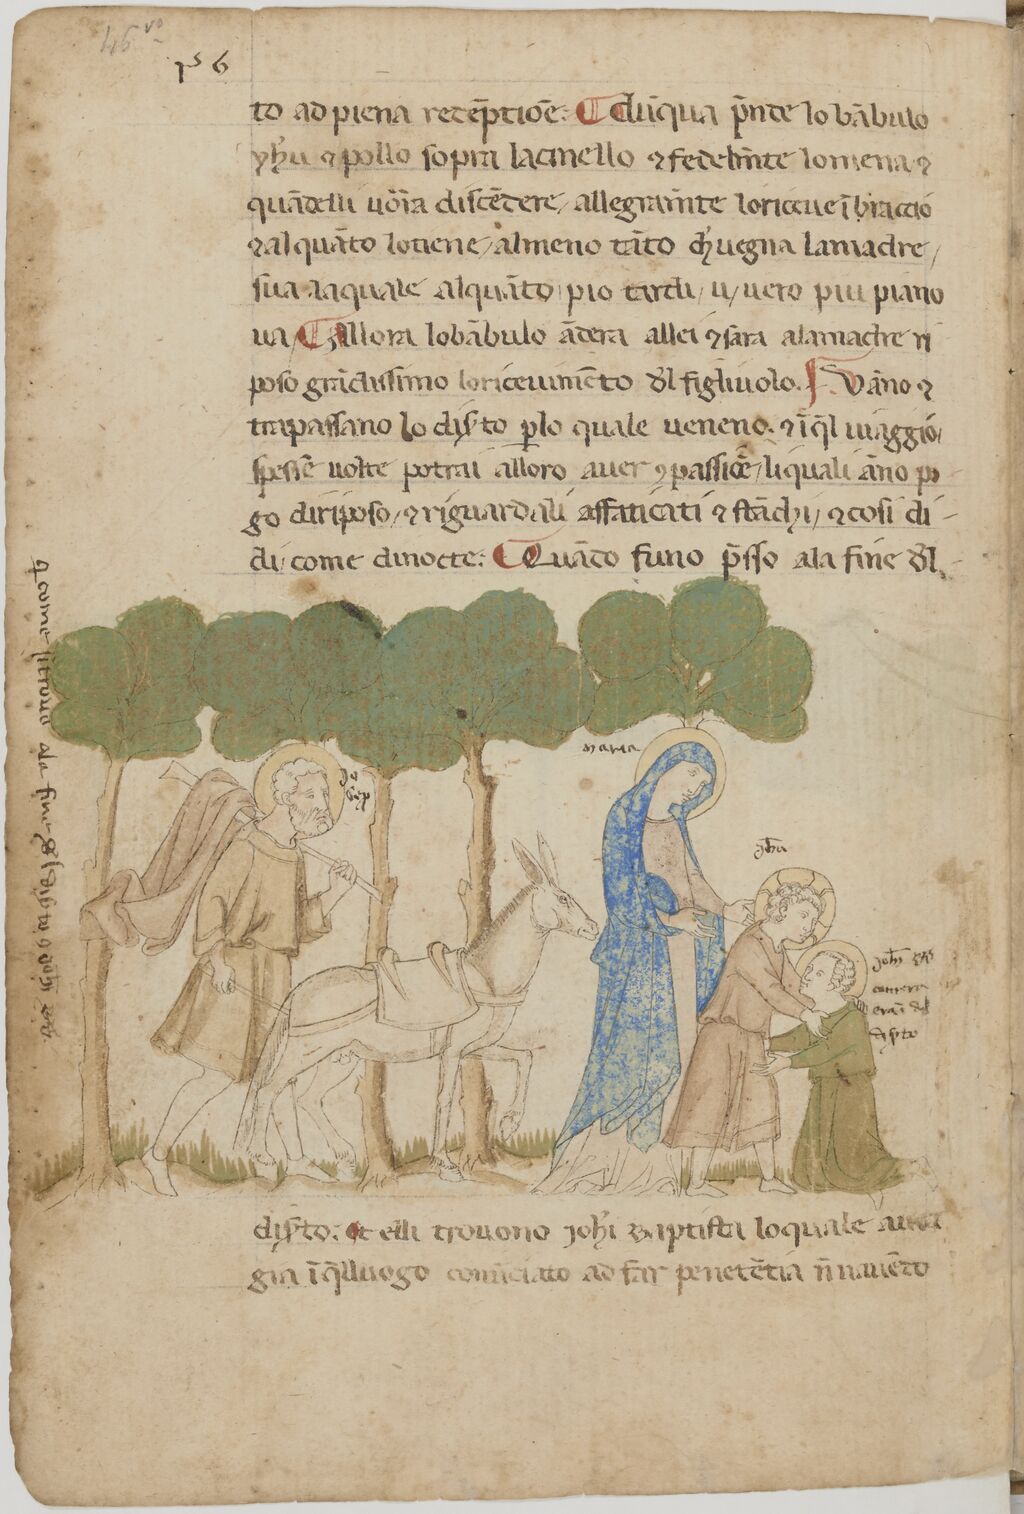 46 vo
ps 6
to ad piena recēptiōe: Dūqua p̄nde lo bābulo
yh̄u ⁊ pollo sopra lacinello ⁊ fedelm̄te lomena ⁊
quādelli uōra discēdere, allegram̄te loriceue ī braccio
⁊ alquāto lotiene, almeno tāto ch̄ uegna lamadre,
sua laquale alquāto pio tardi, u, uero piu piano
ua, Allora lobābulo ādera allei ⁊ sara alamadre ri
poso grādissimo loriceuimēto d̄l figliuolo. Vāno ⁊
trapassano lo dis̄to p̱lo quale ueneno. ⁊ īq̄l uiaggio,
spesse uolte potrai alloro auer ꝯpassiōe, liquali āno po
go diriposo, ⁊ riguardali affaticati ⁊ stāchi, ⁊ cosi di
di come dinocte: Quādo funo p̄sso ala fine d̄l
maria
Jo
sep
yh̄u
dis̄to: Et elli trouono joh̄i baptista loquale auea
gia īq̄lluogo comīciato ad far penetētia nn̄ auēdo